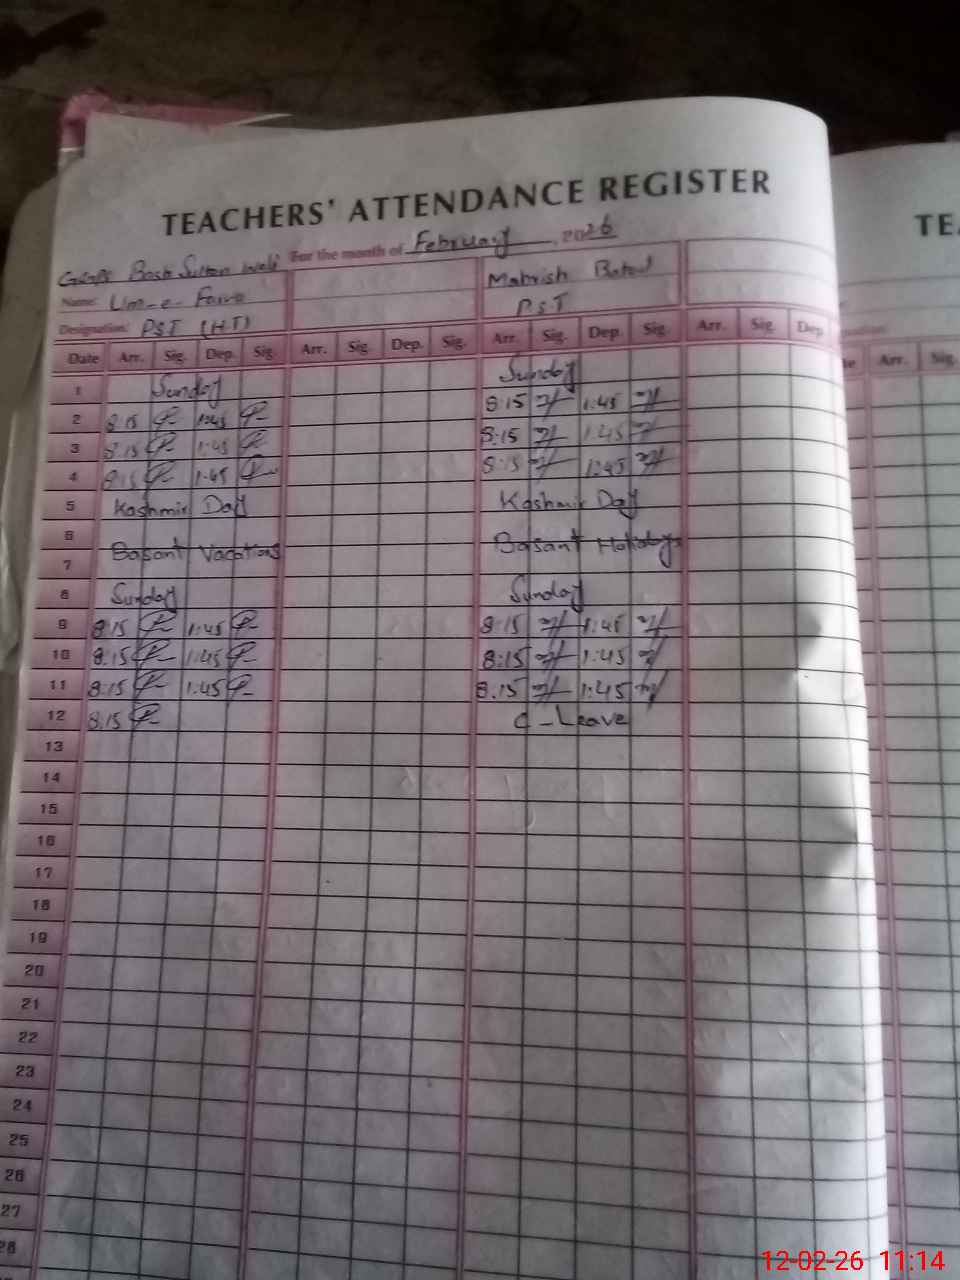 TEACHERS' ATTENDANCE REGISTER
For the month of February, 2026
Bash Sultan
Name: Um-e- Matrish Batool
Designation: PST (H.T) PST
Date Arr. Sig. Dep. Sig. Arr. Sig. Dep. Sig. Arr. Sig. Dep. Sig. Arr. Sig. Dep.
1 Sunday Sunday
2 8:15 1:45 8:15 1:45
3 8:15 1:45 8:15 1:45
4 8:15 1:45 8:15 1:45
5 Kashmir Day Kashmir Day
6
Basant Vacations Basant Holidays
7
8 Sunday Sunday
9 8:15 1:45 8:15 1:45
10 8:15 1:45 8:15 1:45
11 8:15 1:45 8:15 1:45
12 8:15 C-Leave
13
14
15
16
17
18
19
20
21
22
23
24
25
26
27
28
TEA
Arr. Sig.
12-02-26 11:14